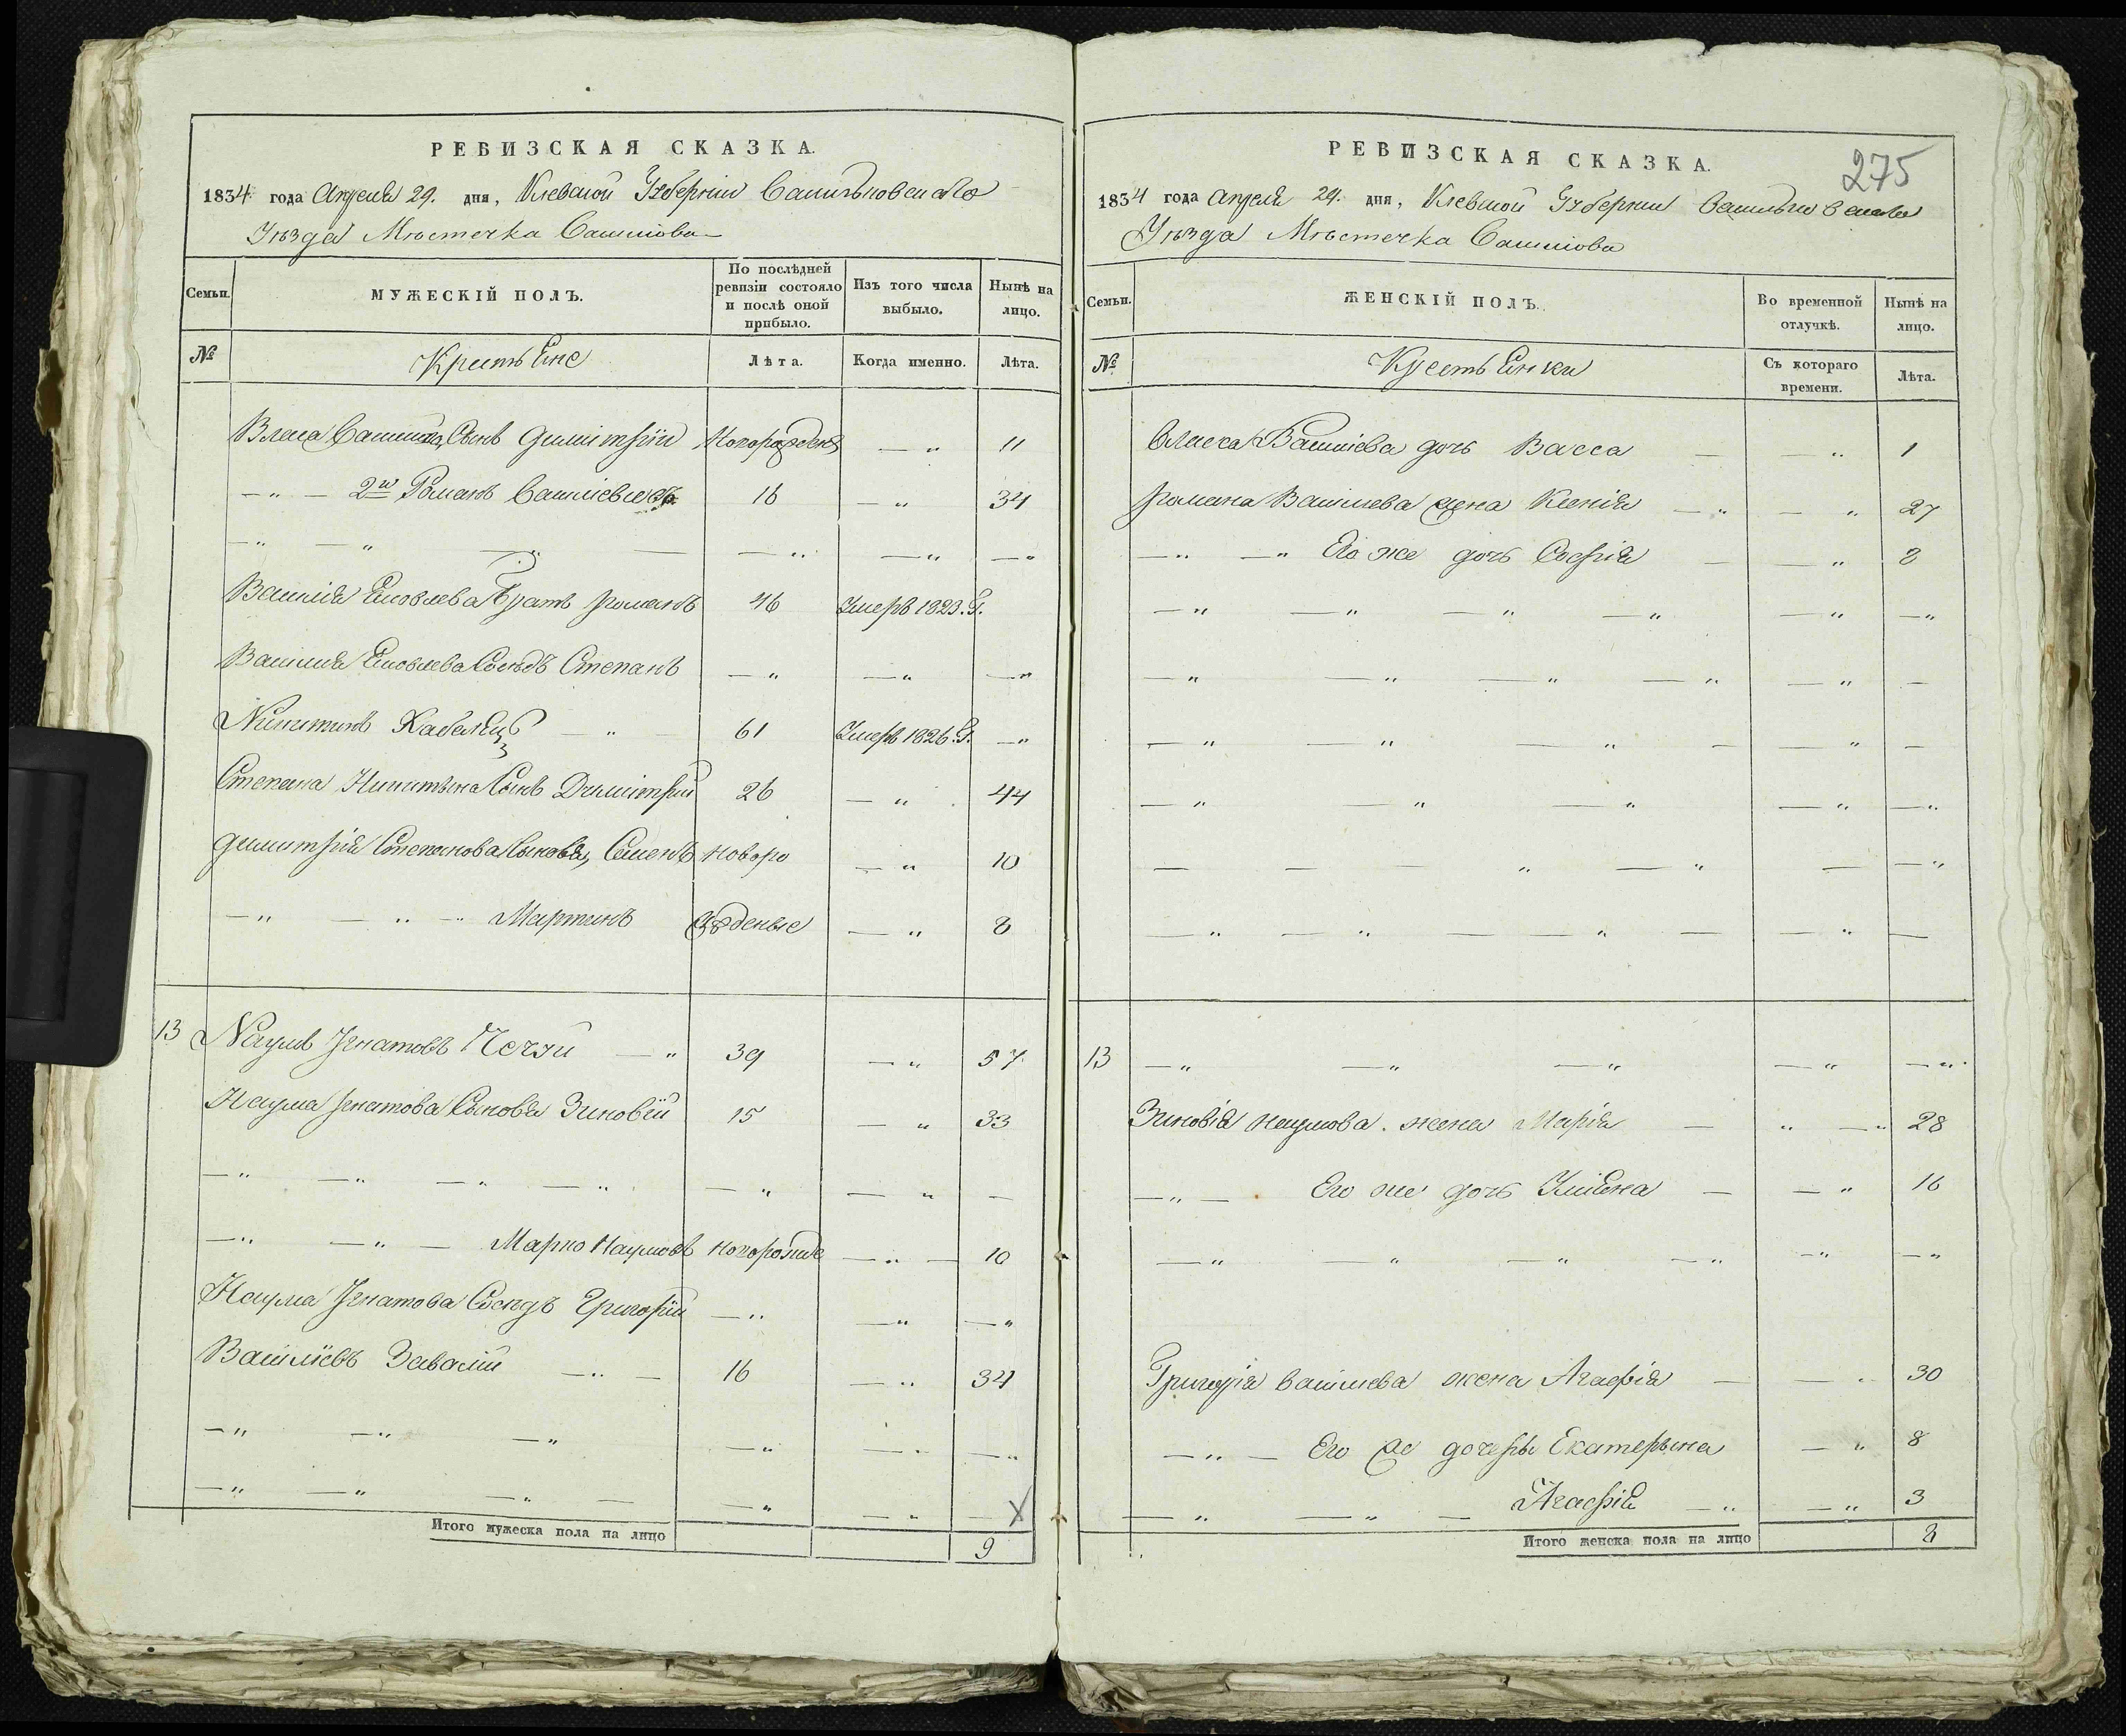 РЕВИЗСКАЯ СКАЗКА.
1834 года Апреля 29. дня, Киевской Губернии Васильковскаго
Уезда Местечка
Семьи.
МУЖЕСКІЙ ПОЛЪ.
По послѣдней ревизіи состояло и послѣ оной прибыло.
Изъ того числа выбыло.
Нынѣ на лицо.
№
Крестьяне
Лѣта.
Когда именно.
Лѣта.
Власа Сынъ Димитрій Новорожденъ — " 11
— " — 2й Романъ Василіевъ 16 — " 34
— " — " — " — — " — " — "
Василія Яковлева Братъ Романъ 46 Умеръ 1823. Г.
Василія Яковлева Соседъ Степанъ — " — " — "
Никитинъ — " 61 Умеръ 1826. Г. — "
Степана Никитина Сынъ Димитрій 26 — " 44
Димитрія Степанова Сыновья, Семенъ Новоро — " 10
— " — " — " Мартинъ жденые — " 8
13 Наумъ Игнатовъ — " 39 — " 57
Наума Игнатова Сыновья Зиновій 15 — " 33
— " — " — " — " — " — " —
— " — " — Марко Наумовъ Новорожде — " — 10
Наума Игнатова Соседъ Григорій — " — " — "
Василіевъ Завалій — " — 16 — " 34
— " — " — " — " — " — "
— " — " — " — — " — " — X
Итого мужеска пола на лицо 9
РЕВИЗСКАЯ СКАЗКА.
275
1834 года Апреля 29. дня, Киевской Губернии Васильковскаго
Уезда Местечка
Семьи.
ЖЕНСКІЙ ПОЛЪ.
Во временной отлучкѣ.
Нынѣ на лицо.
№
Крестьянки
Съ котораго времени.
Лѣта.
Власа Василіева дочь Васса — — " 1
Романа Василиева жена Ксенія — " — " 27
— " — " Его же дочь Софія — — " 8
— " — " — " — " — " — "
— " — " — " — " — " —
— " — " — " — — " —
— " — " — " — " — "
— — — " — " — — "
— " — " — — " — — " —
13 — " — " — " — " — "
Зиновія Наумова. жена Марія — " — " 28
— " — Его же дочь Уліяна — — " 16
— " — " — " — " — " — "
Григорія Василиева жена Агафія — — " 30
— " — Его же дочеры Екатерына — " 8
— " — " — Агафія — " — " 3
Итого женска пола на лицо 8